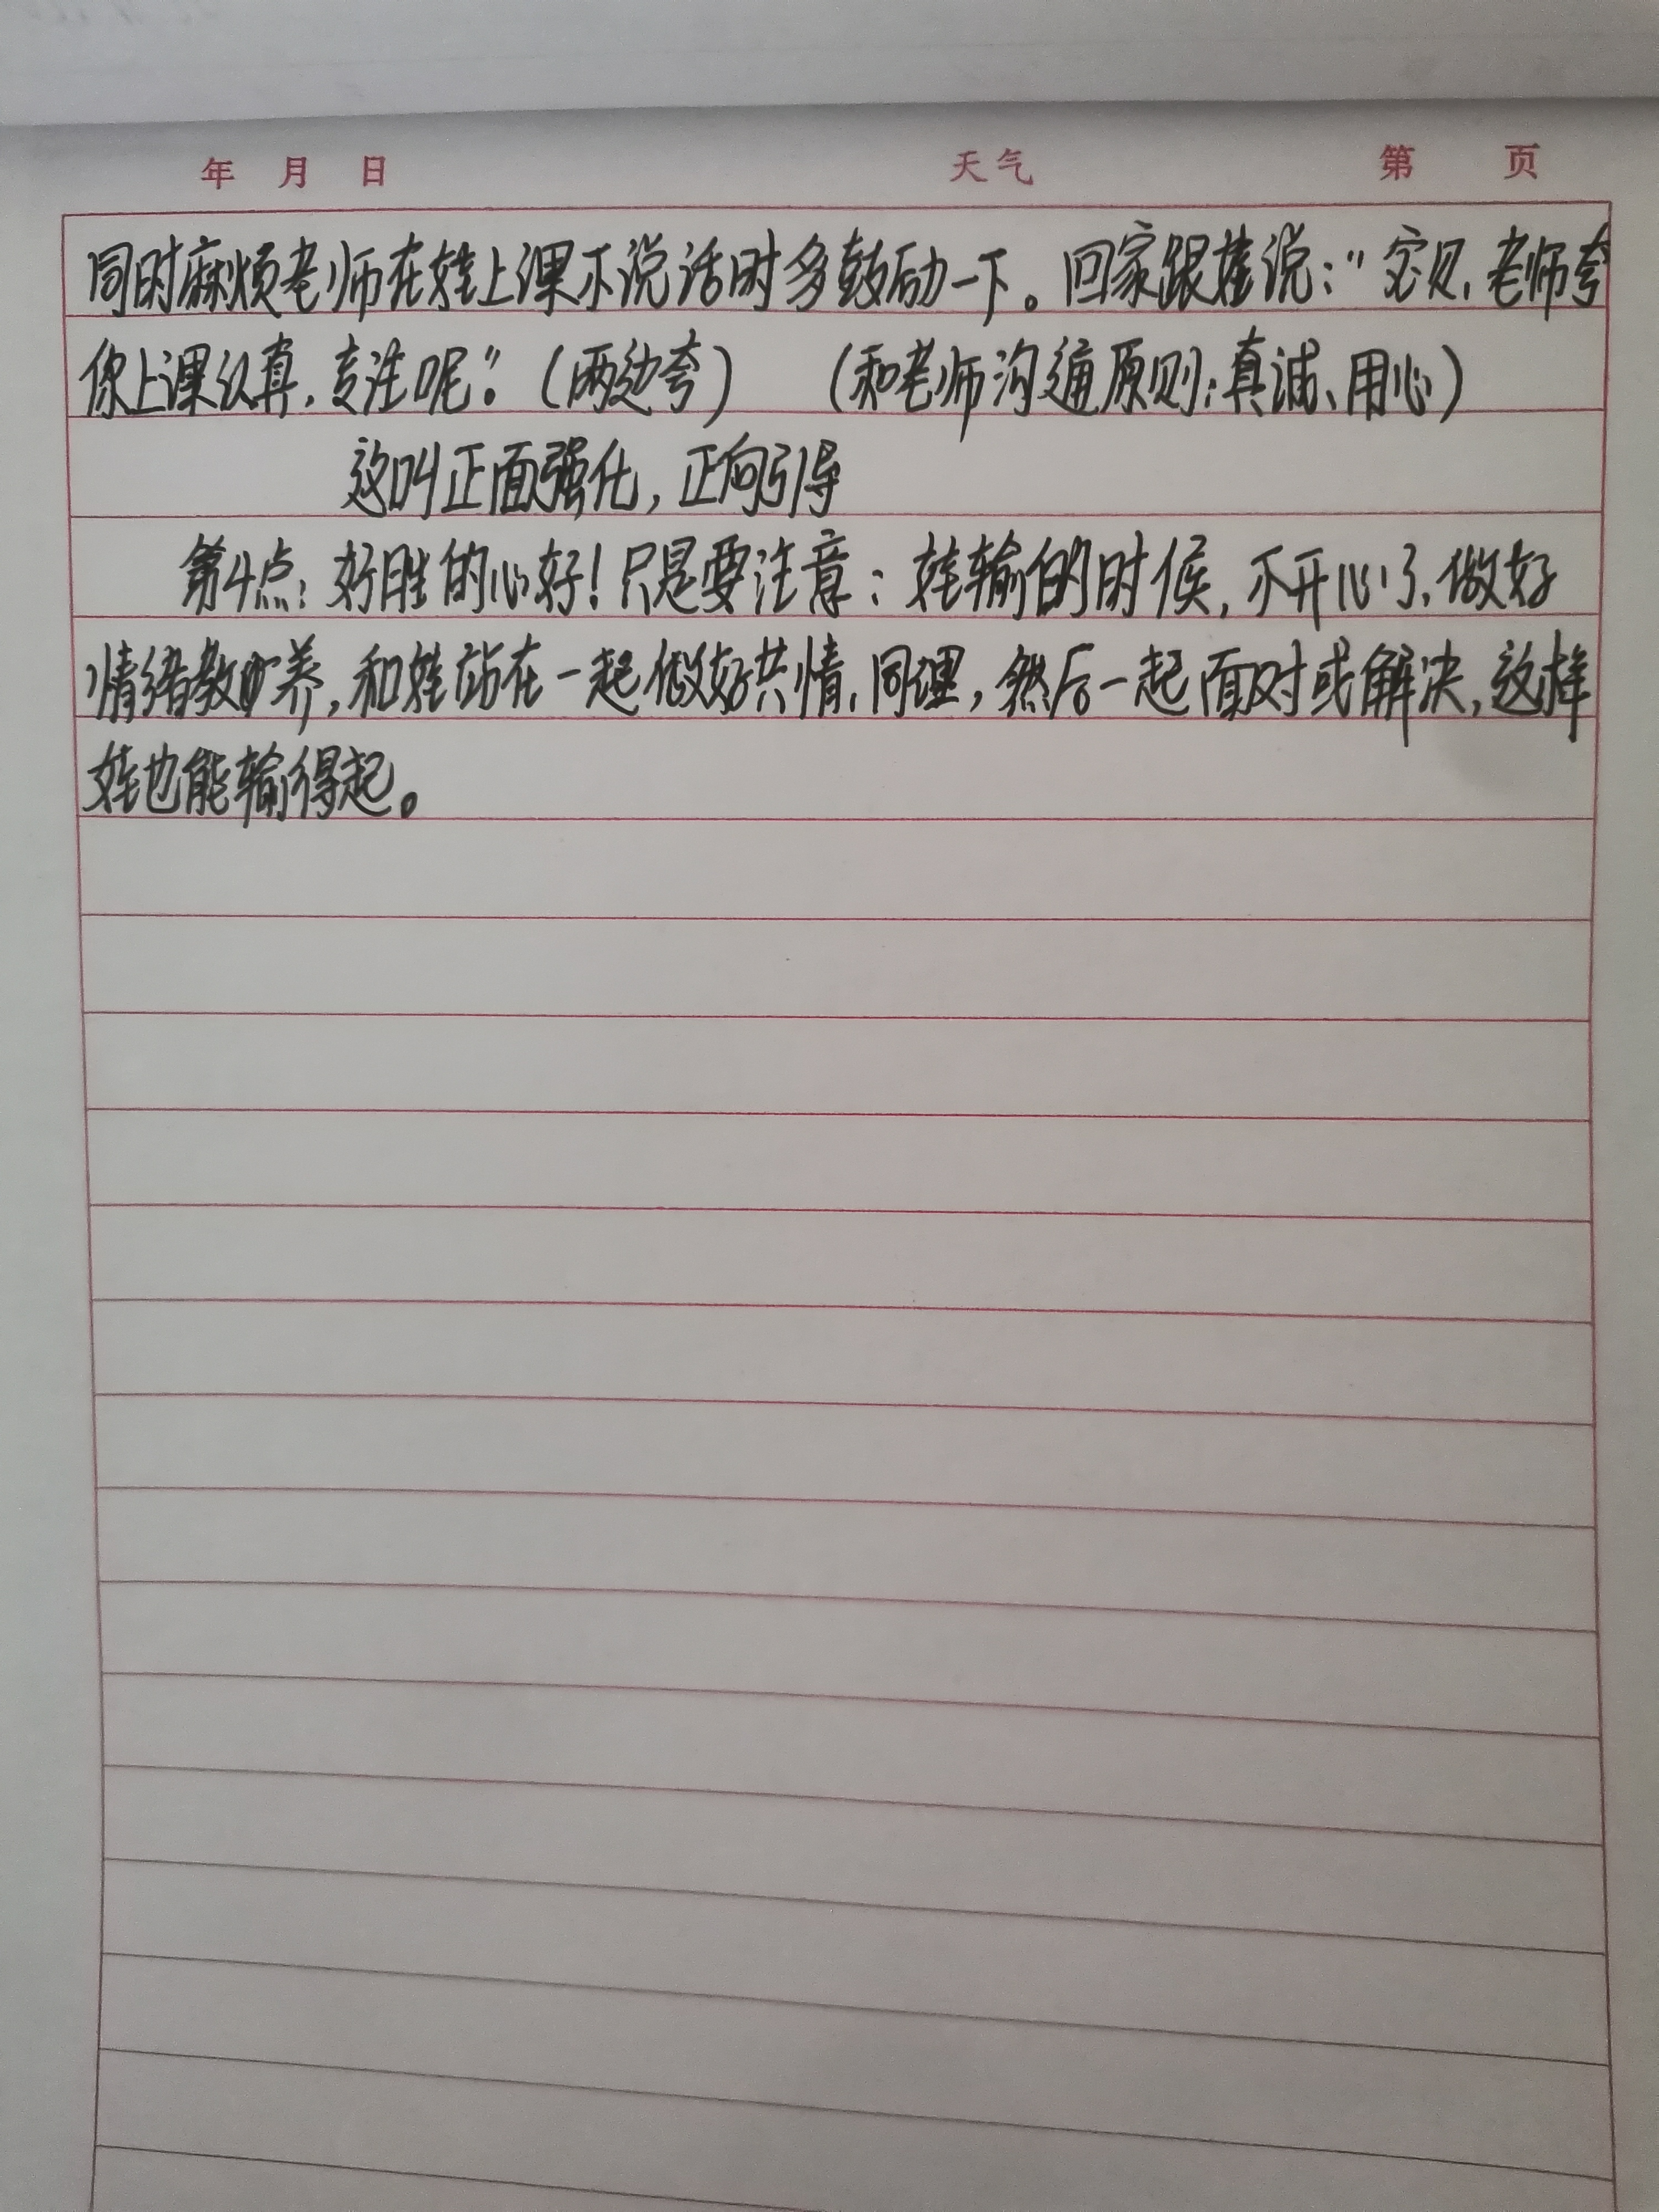 年 月 日 天气 第 页
同时麻烦老师在娃上课不说话时多鼓励一下。回家跟娃说：“宝贝，老师夸
你上课认真，专注呢”。（两边夸） （和老师沟通原则：真诚、用心）
这叫正面强化，正向引导
第4点：好胜的心好！只是要注意：娃输的时候，不开心了，做好
情绪教养，和娃站在一起做好共情，同理，然后一起面对或解决，这样
娃也能输得起。